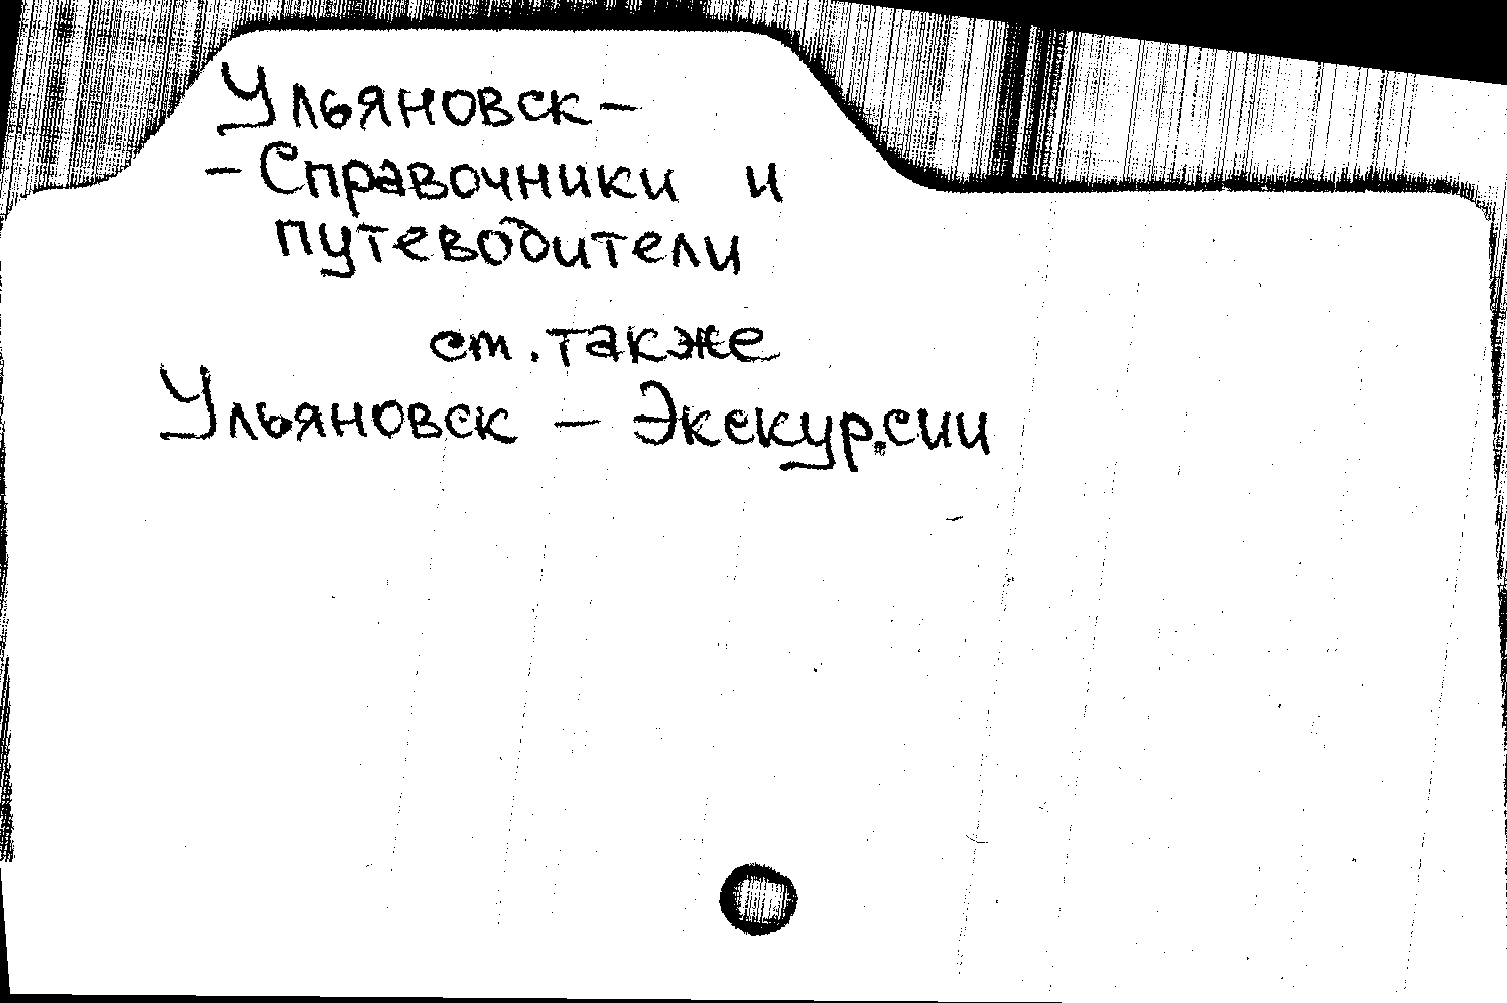 Ульяновск –
– Справочники и
путеводители
см. также
Ульяновск – Экскурсии